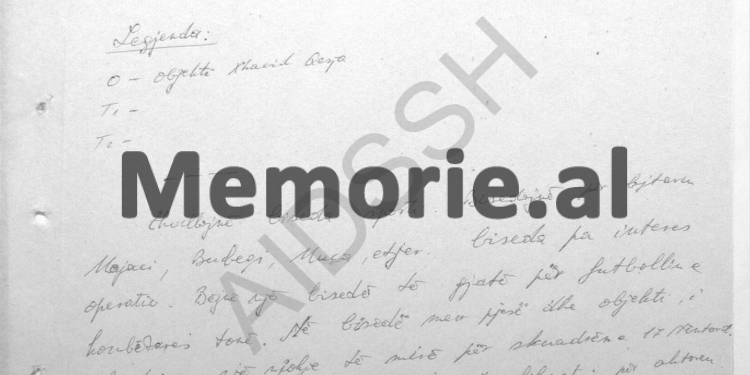 Legjenda:
O – objekti Xhavid Qesja
T₁ –
T₂ –
Memorie.al
AIDSSH
Zhvillojnë biseda sporti. Bisedojnë për lojtaren
Majaci, Budegi, Muça, etjer. biseda pa interes
operativ. Bejnë një bisedë të gjatë për futbollin e
kombëtares tonë. Në bisedë merr pjesë dhe objekti, i
një njohje të mirë për skuadrën e 17 Nentorit.
për aktoren